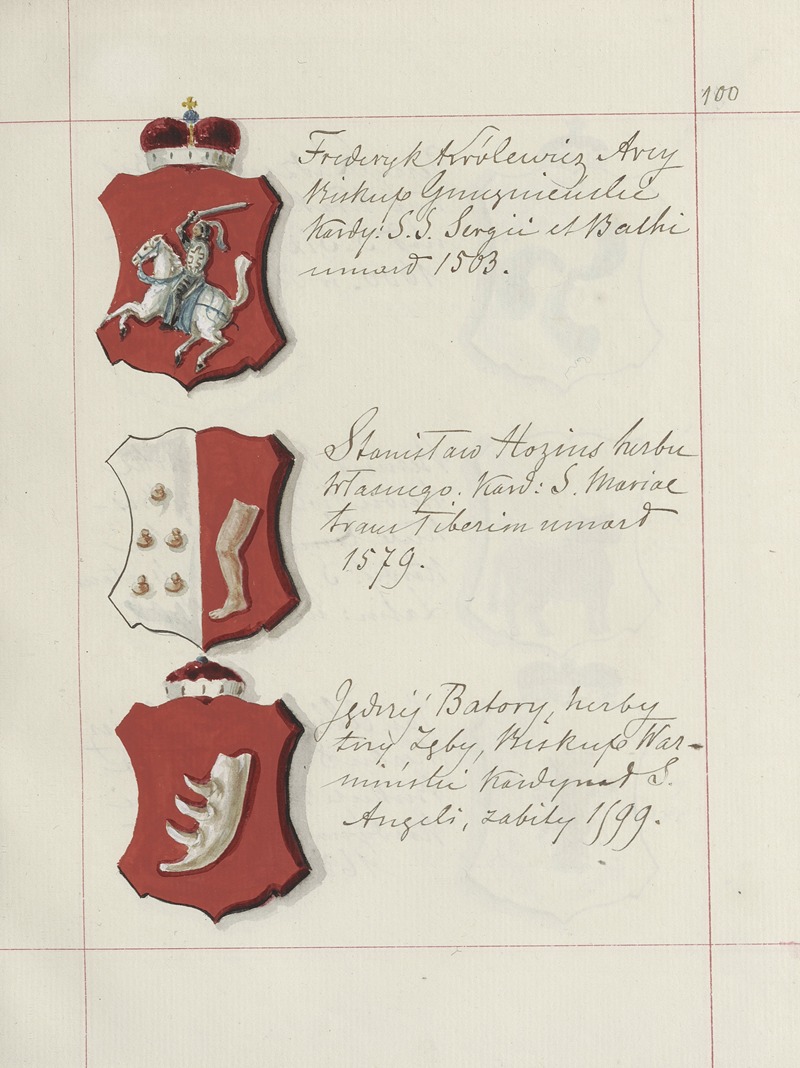 100
Frederyk Królewicz Arcy
Biskup Gnieznieński
Kardy: S. S. Sergii et Bachi
umarł 1503.
Stanisław Hozius herbu
własnego. Kard: S. Mariae
trans Tiberim umarł
1579.
Jędrzéj Batory, herby
trzy Zęby, Biskup War-
miński Kardynał S.
Angeli, zabity 1599.